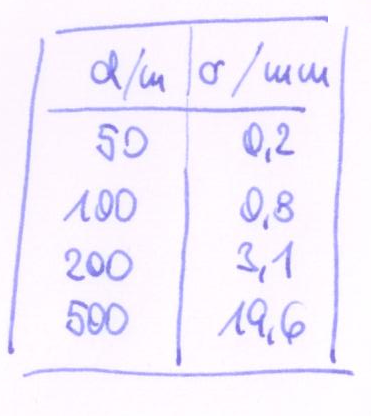 d/m σ/mm
50 0,2
100 0,8
200 3,1
500 19,6